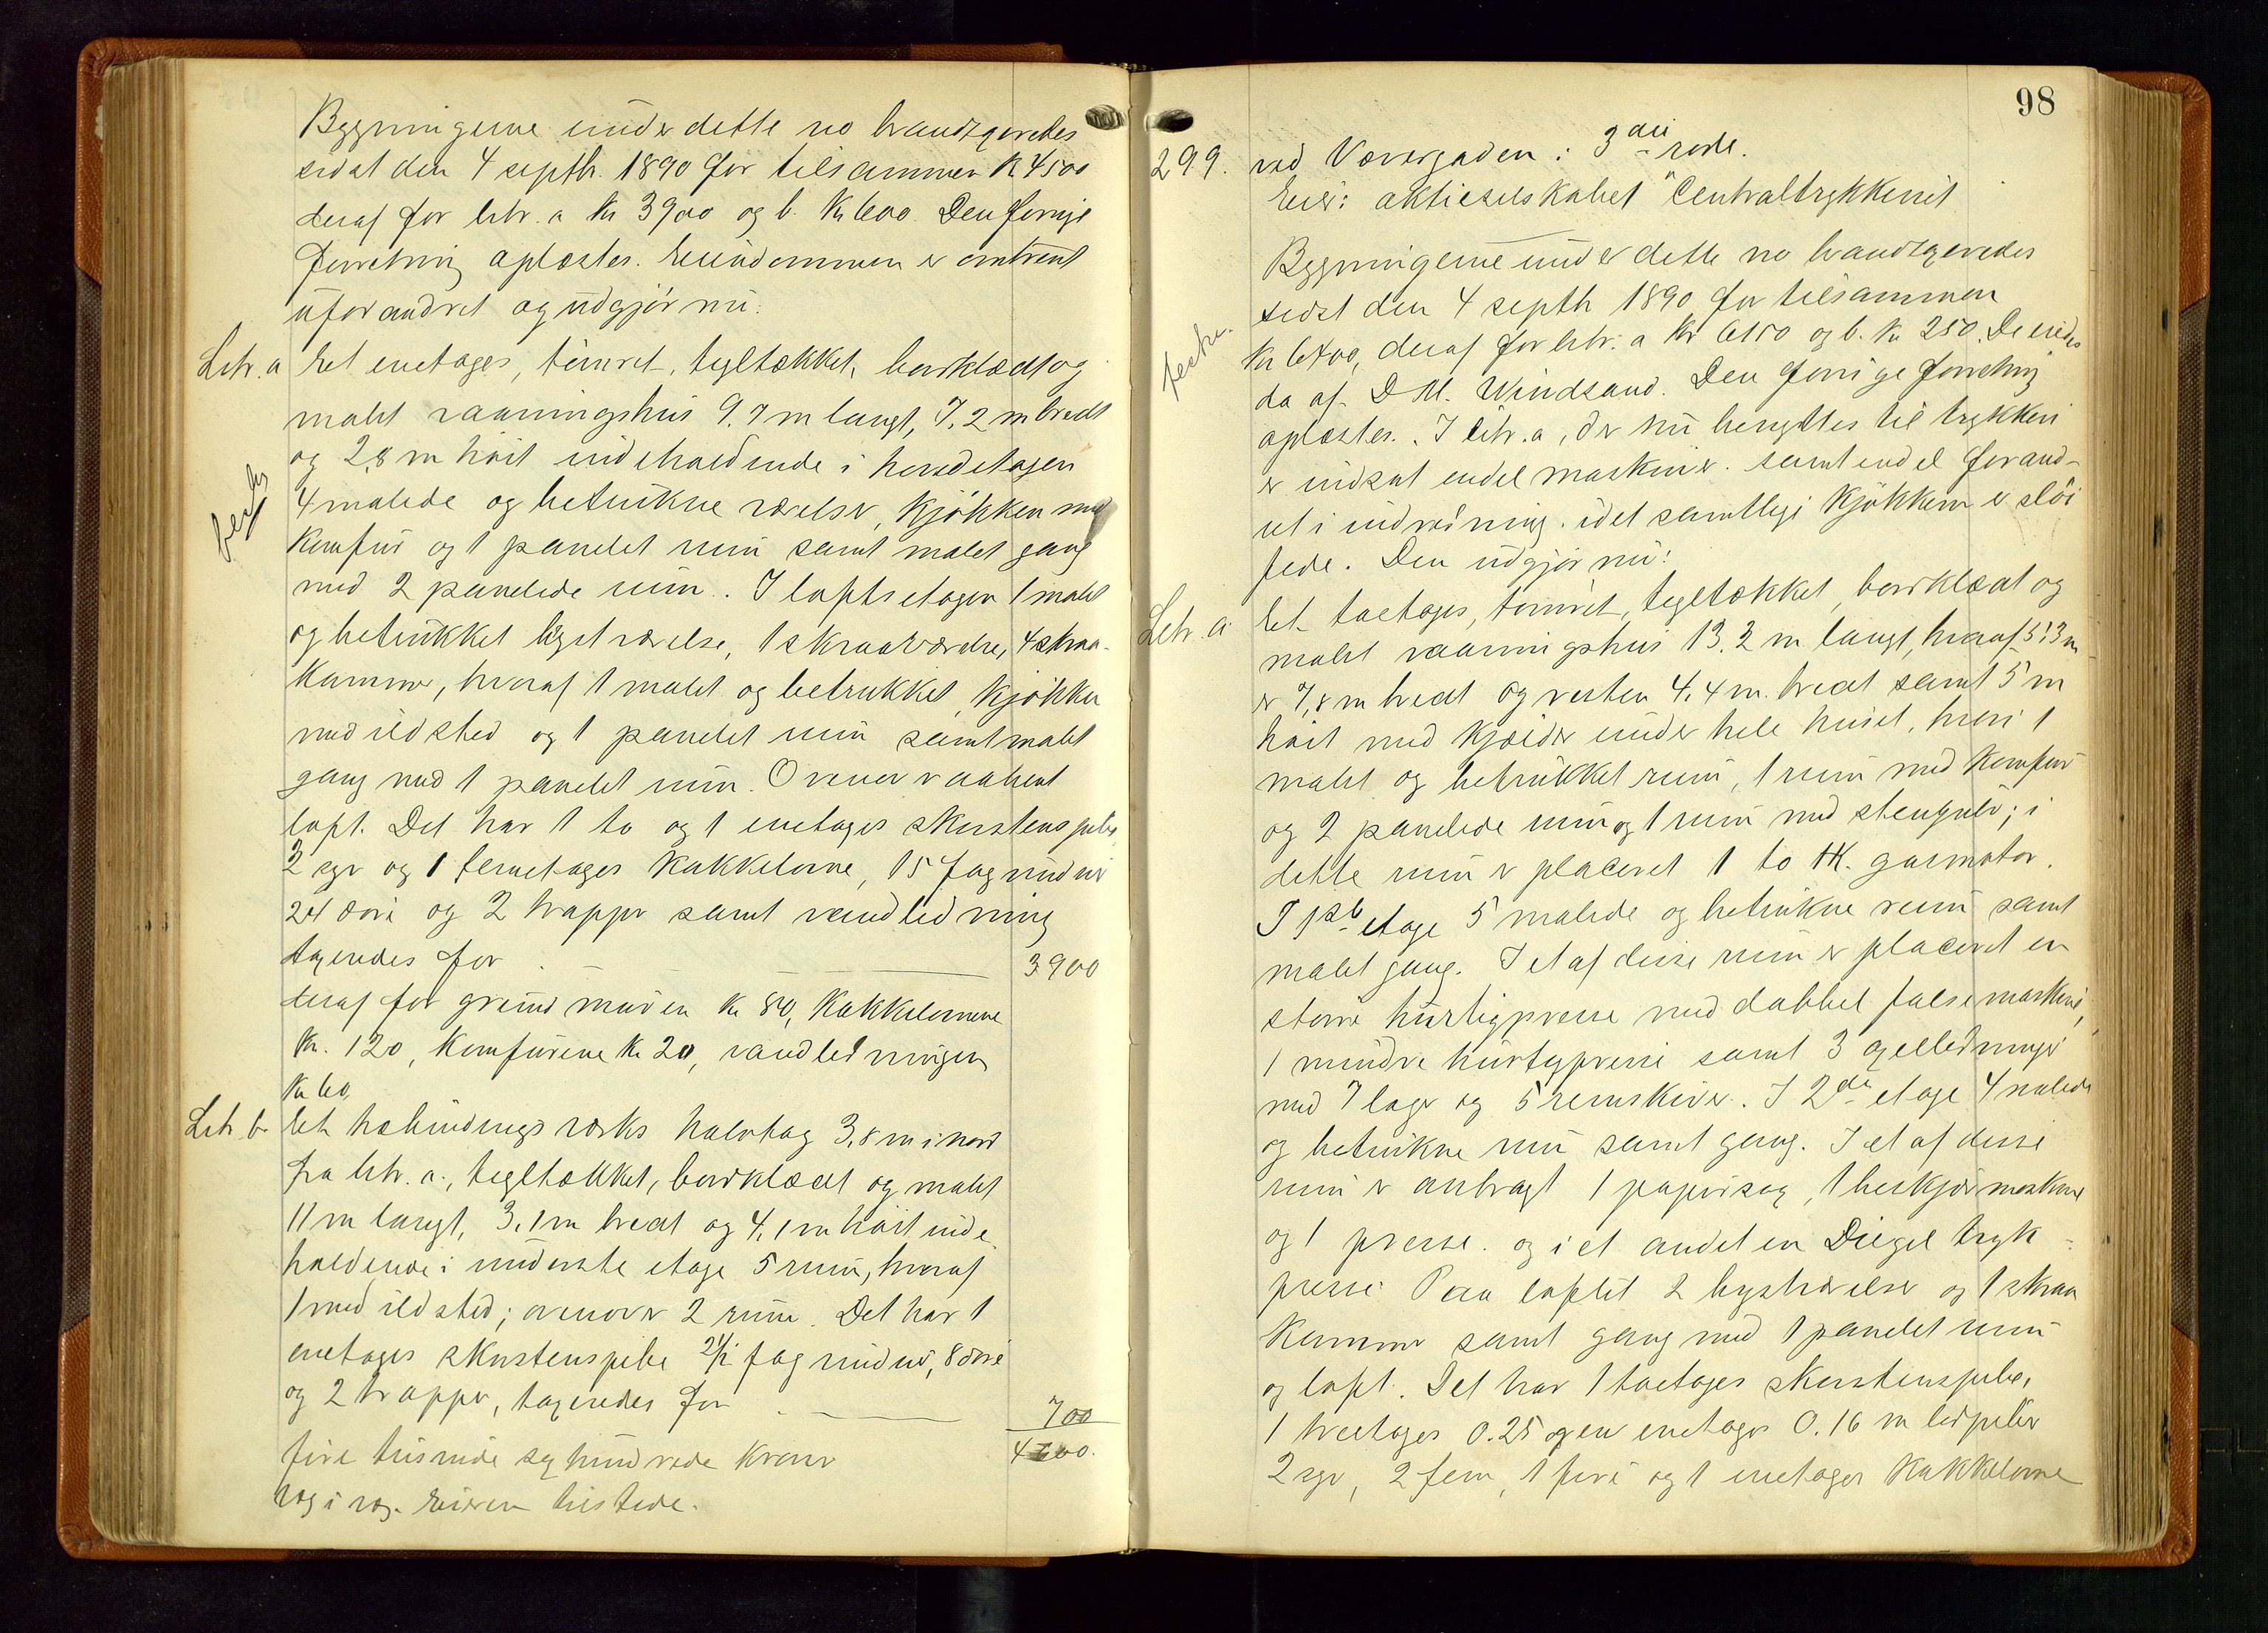 Bygningerne under dette no brandtaxeredes
sidst den 4 septbr. 1890 for tilsammen K 4500
deraf for litr. a Kr 3900 og b. Kr 600. Den forrige
forretning oplæstes. Eiendommen er omtrent
uforandret og udgjör nu:
Litr. a Et enetages, tömret, tegltækket, bordklædt og
malet vaaningshus 9.7 m langt, 7.2 m bredt
og 2,8 m höit indeholdende i hovedetagen
4 malede og betrukne værelser, kjökken med
komfur og 1 panelet rum samt malet gang
med 2 panelede rum. I loftsetagen 1 malet
og betrukket kvistværelse, 1 skraaværelse, 4 skraa-
kammer, hvoraf 1 malet og betrukket, kjökken
med ildsted og 1 panelet rum samt malet
gang med 1 panelet rum. Ovenover aabent
loft. Det har 1 to og 1 enetages skorstenspibe,
2 og 1 femetages kakkelovne, 15 fag vinduer
24 döre og 2 trapper samt vandledning
taxeredes for 3900
deraf for grundmuren Kr 80, kakkelovnene
Kr. 120, komfurene Kr 20, vandledningen
Kr 60,
Litr. b. Et halvtag 3,8 m i nord
fra litr. a., tegltækket, bordklædt og malet
11 m langt, 3,1 m bredt og 4,1 m höit inde
holdende i underste etage 5 rum, hvoraf
1 med ildsted; ovenover 2 rum. Det har 1
enetages skorstenspibe 21/2 fag vinduer, 8 döre
og 2 trapper, taxeredes for 700
fire tusinde sex hundrede kroner 4600.
Eieren tilstede.
98
299. ved Vævergaden i 3die rode.
Eier: aktieselskabet "Centraltrykkeriet
Bygningerne under dette no brandtaxeredes
sidst den 4 septbr 1890 for tilsammen
Kr 6400, deraf for litr. a Kr 6150 og b. Kr 250. De eiedes
da af D M. Windsand. Den forrige forretning
oplæstes. I litr. a, der nu benyttes til trykkeri
er indsat endel maskiner. samt endel forand-
ret i indredning. idet samtlige kjökkener er slöi
fede. Den udgjör nu:
Litr. a Et toetages, tömret, tegltækket, bordklædt og
malet vaaningshus 13.2 m langt, hvoraf 5.3 m
er 7,8 m bredt og resten 4,4 m. bredt samt 5 m
höit med kjælder under hele huset, hvori 1
malet og betrukket rum, 1 rum med komfur
og 2 panelede rum og 1 rum med stengulv; i
dette rum er placeret 1 to HK. gasmotor.
I 1ste etage 5 malede og betrukne rum samt
malet gang. I et af disse rum er placeret en
större hurtigpresse med dobbel falsemaskine,
1 mindre hurtigpresse samt 3 axelledninger
med 7 lager og 5 remskiver. I 2den etage 4 malede
og betrukne rum samt gang. I et af disse
rum er anbragt 1 papirsag, 1 beskjærmaskine
og 1 presse. og i et andet en Diegel tryk-
presse Paa loftet 2 kvistværelser og 1 skraa
kammer samt gang med 1 panelet rum
og loft. Det har 1 toetages skorstenspibe,
1 treetages 0.25 og en enetages 0.16 m ledpiber
2 sex, 2 fem, 1 fire og 1 enetages kakkelovne